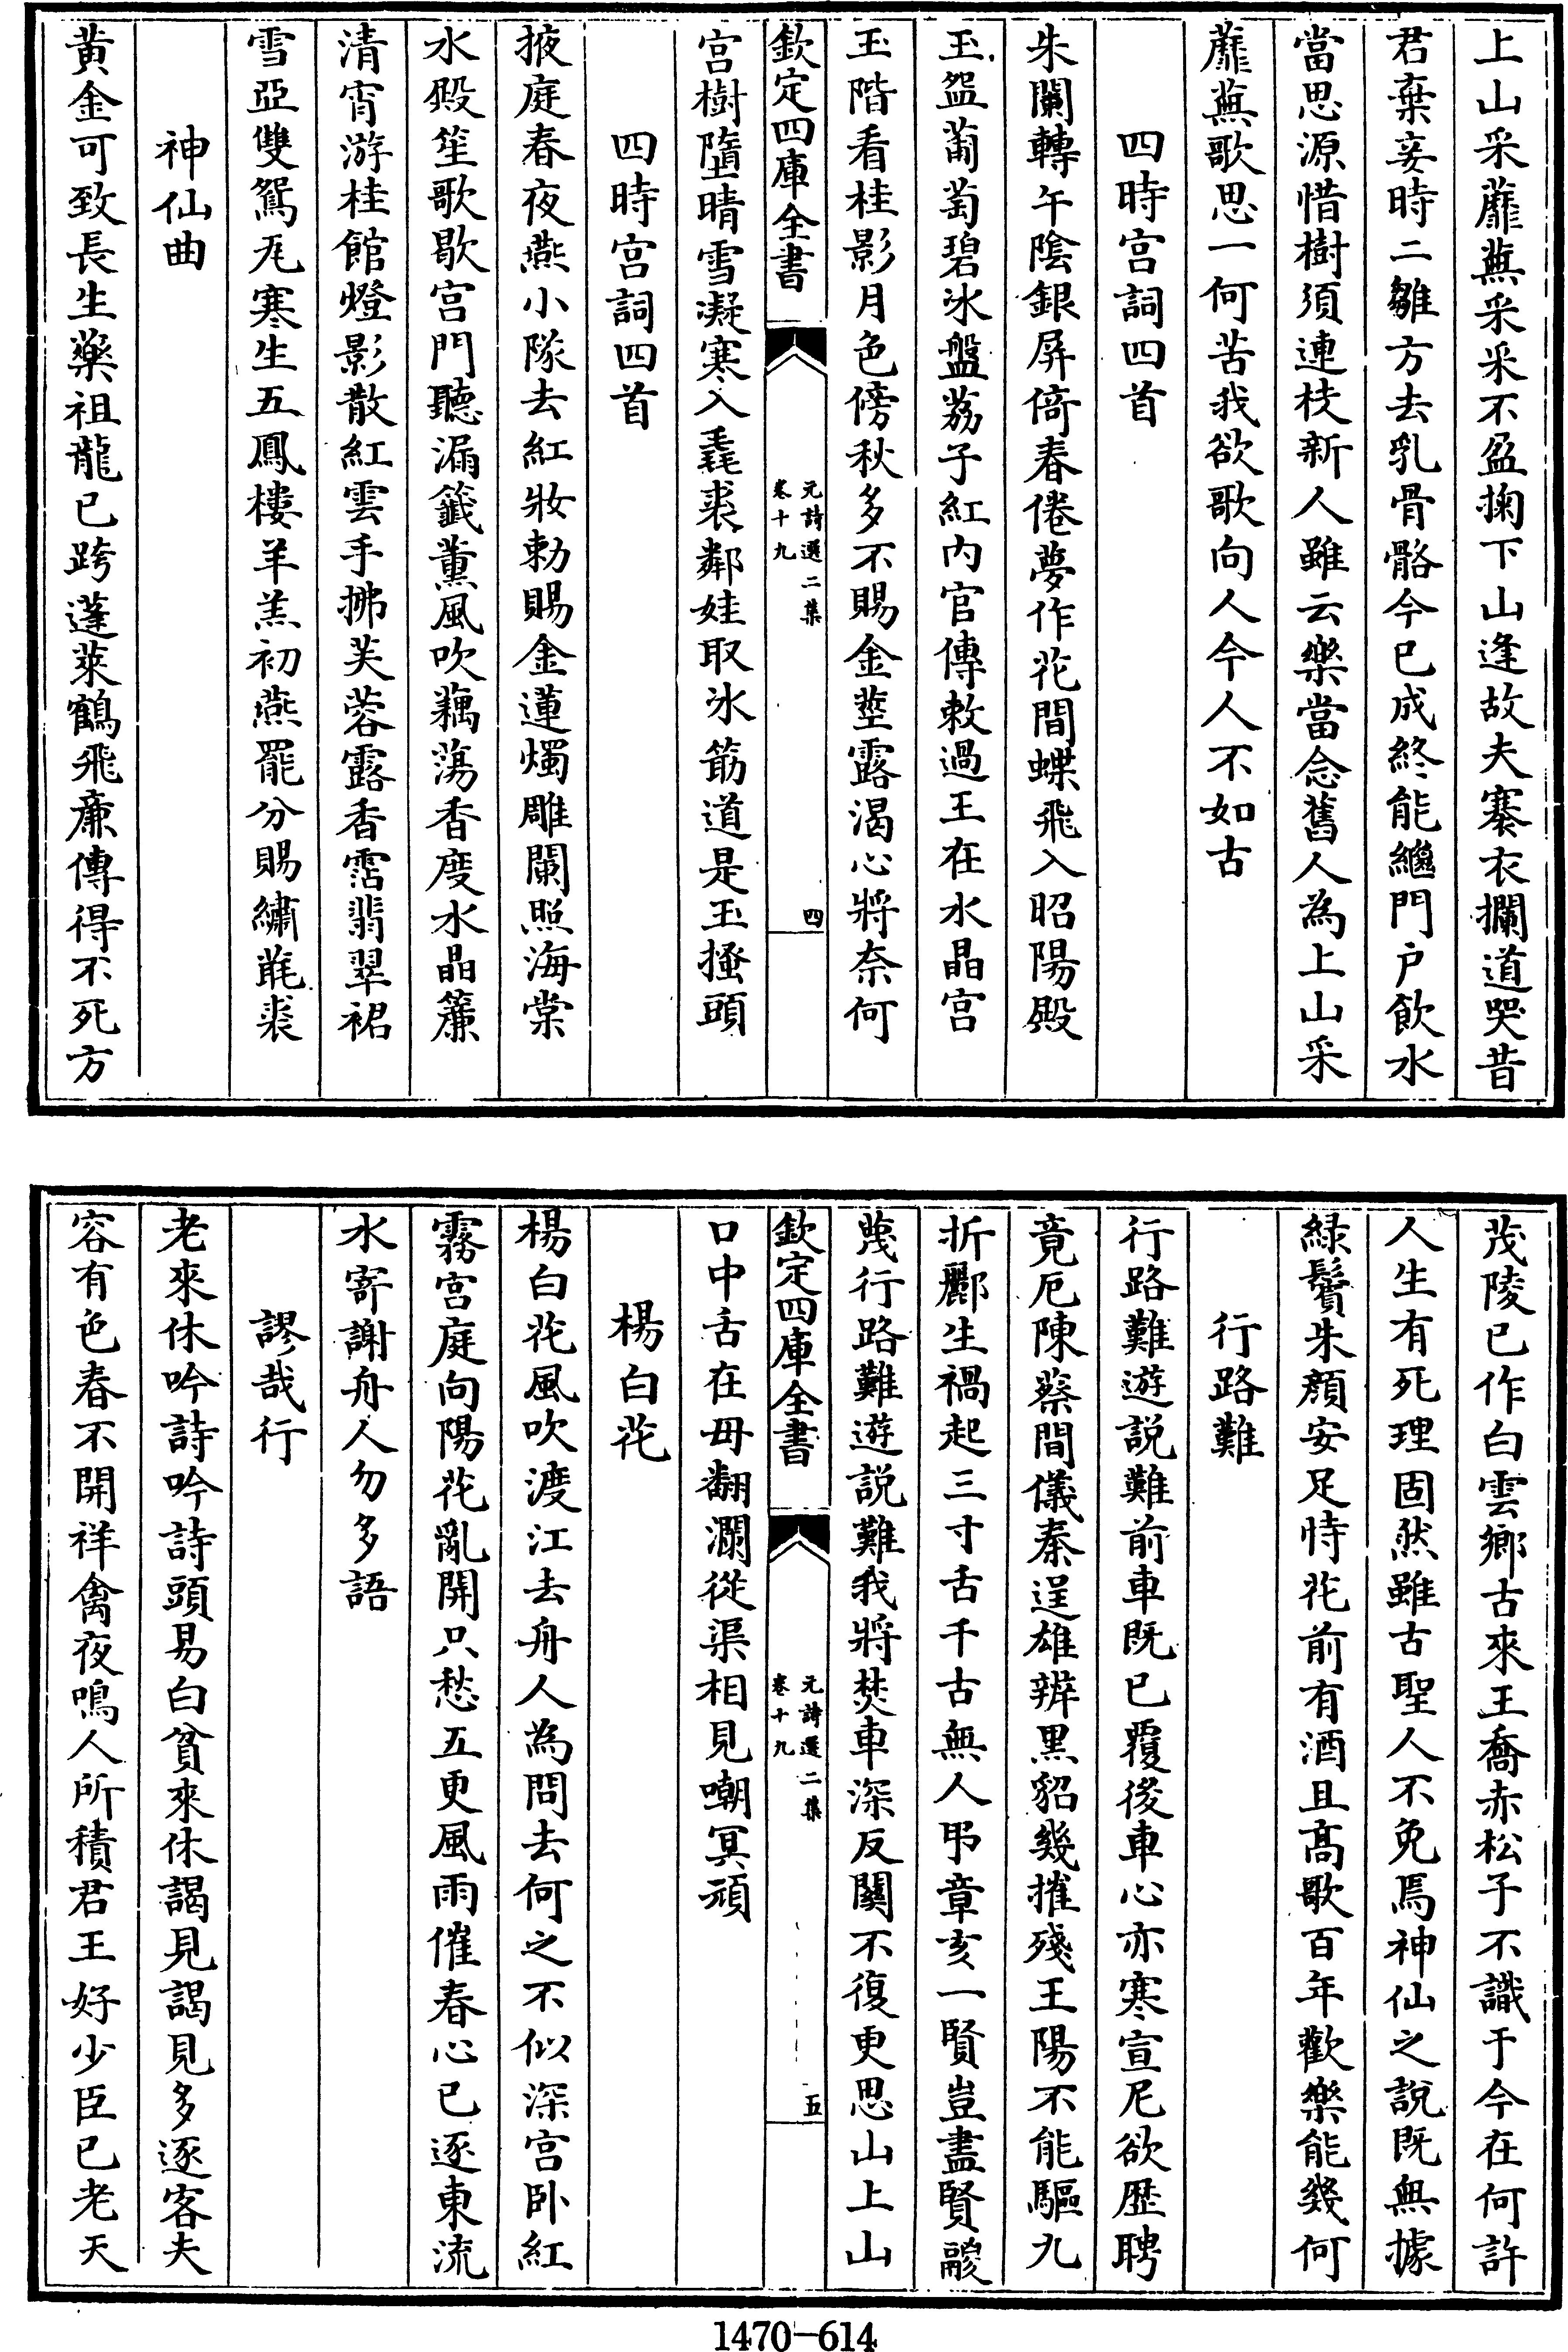 上山采蘼蕪采采不盈掬下山逢故夫褰衣攔道哭昔
君棄妾時二雛方去乳骨骼今已成終能繼門户飲水
當思源惜樹須連枝新人雖云樂當念舊人為上山采
蘼蕪歌思一何苦我欲歌向人今人不如古
四時宫詞四首
朱闌轉午陰銀屏倚春倦夢作花間蝶飛入昭陽殿
玉盌葡萄碧氷盤荔子紅内官傳敕過王在水晶宫
玉階看桂影月色傍秋多不賜金莖露渴心將奈何
欽定四庫全書
元詩選二集
卷十九
四
宫樹墮晴雪凝寒入毳裘鄰娃取氷筯道是玉搔頭
四時宫詞四首
掖庭春夜燕小隊去紅妝勅賜金蓮燭雕闌照海棠
水殿笙歌歇宫門聽漏籤薰風吹藕蕩香度水晶簾
清宵游桂館燈影散紅雲手拂芙蓉露香霑翡翠裙
雪亞雙鴛瓦寒生五鳳樓羊羔初燕罷分賜繡毼裘
神仙曲
黄金可致長生藥祖龍已跨蓬萊鶴飛亷傳得不死方
茂陵已作白雲鄉古來王喬赤松子不識于今在何許
人生有死理固然雖古聖人不免焉神仙之說既無據
緑鬢朱顔安足恃花前有酒且髙歌百年歡樂能幾何
行路難
行路難遊説難前車既已覆後車心亦寒宣尼欲歴聘
竟厄陳蔡間儀秦逞雄辨黒貂幾摧殘王陽不能驅九
折酈生禍起三寸舌千古無人弔章亥一賢豈盡賢鬷
蔑行路難遊説難我將焚車深反闗不復更思山上山
欽定四庫全書
元詩選二集
卷十九
五
口中舌在毋翻瀾從渠相見嘲冥頑
楊白花
楊白花風吹渡江去舟人為問去何之不似深宫卧紅
霧宫庭向陽花亂開只愁五更風雨催春心已逐東流
水寄謝舟人勿多語
謬哉行
老來休吟詩吟詩頭易白貧來休謁見謁見多逐客夫
容有色春不開祥禽夜鳴人所積君王好少臣已老天
1470-614